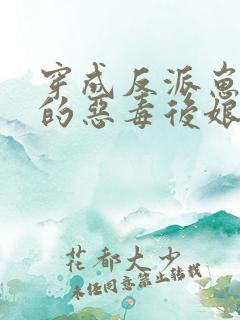 穿成反派崽
的惡毒後娘
花都大少
未经同意禁止转载